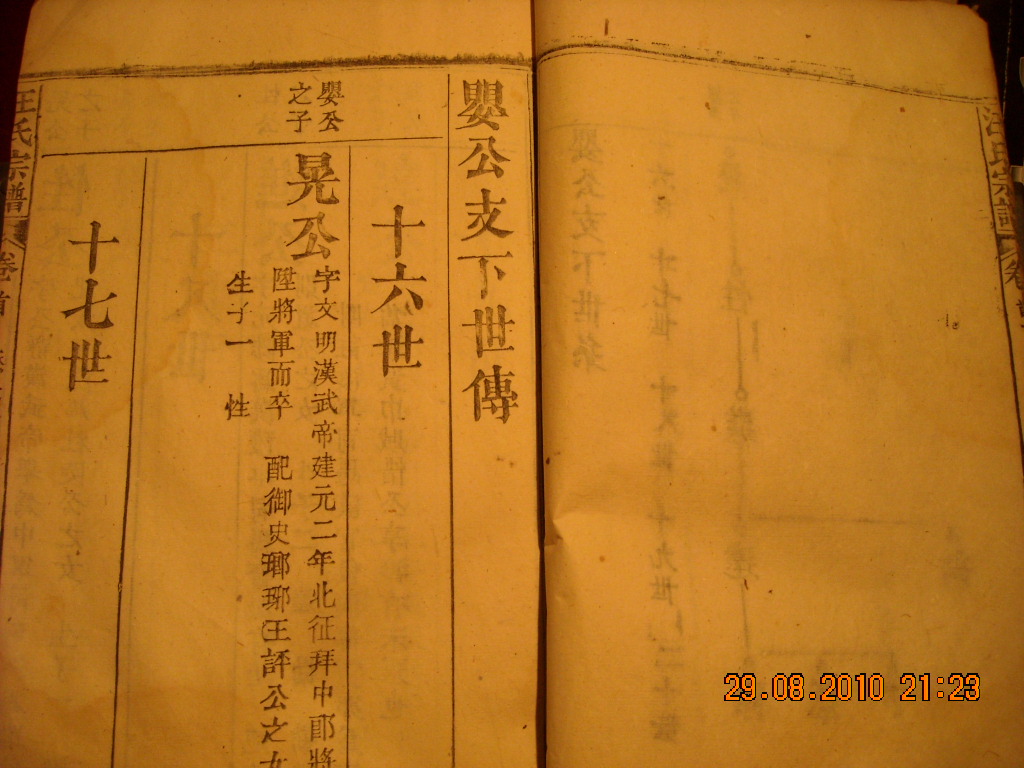 嬰公支下世傳
十六世
嬰公
之子
晃公
字文明漢武帝建元二年北征拜中郎將
陞將軍而卒 配御史瑯琊王評公之女
生子一 性
十七世
汪氏宗譜 卷首
汪氏宗譜 卷首
29.08.2010 21:23